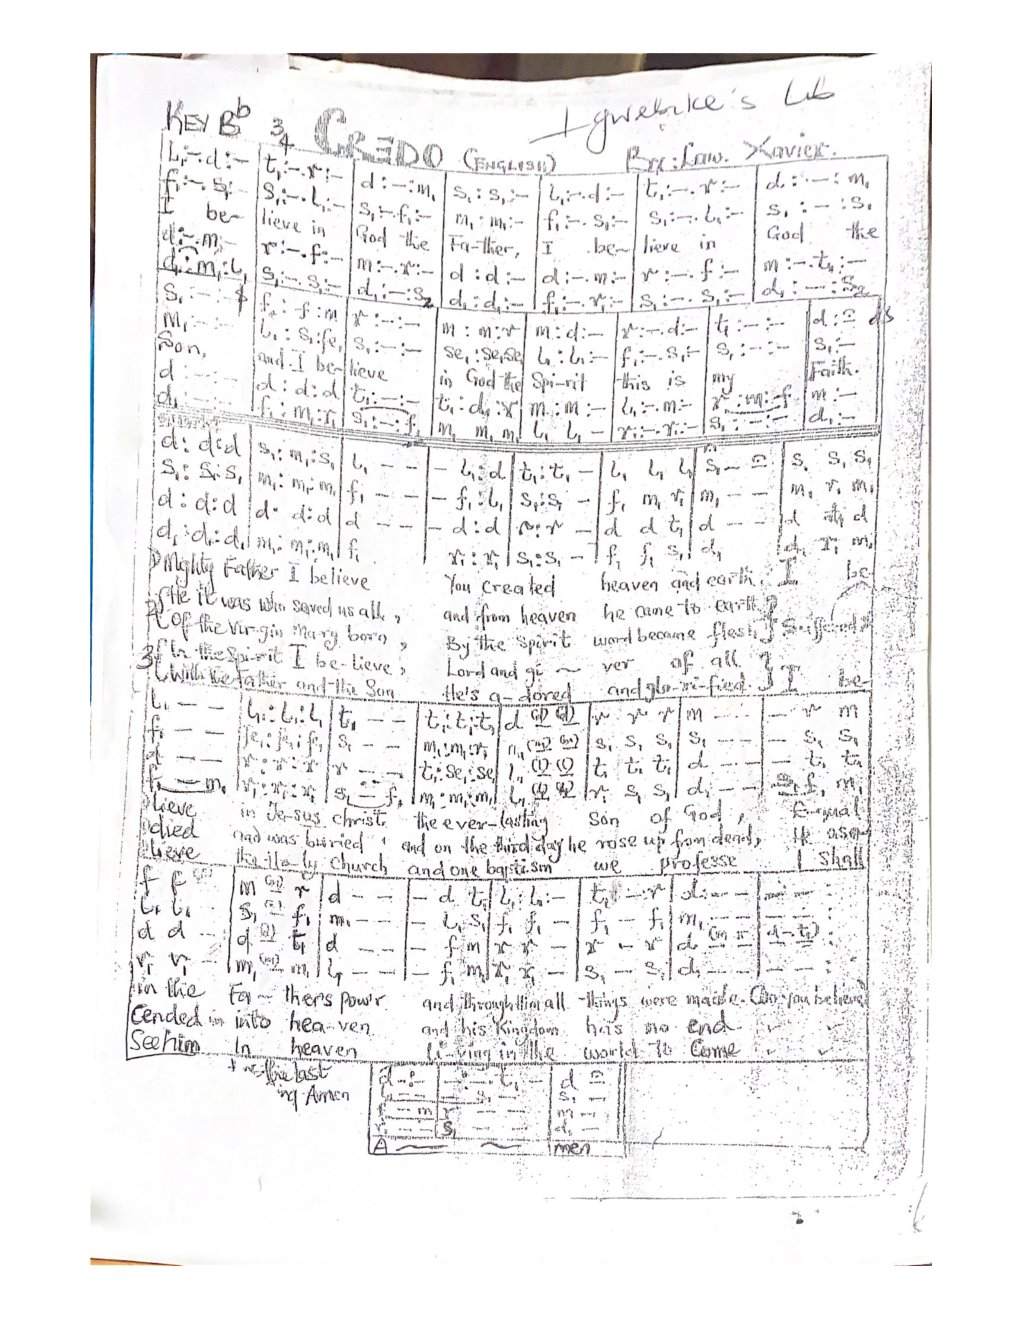 Igwebike's Lib
KEY Bb 3/4 CREDO (ENGLISH) Bro: Law. Xavier.
l₁:-.d:- | t₁:-.r:- | d:-:m₁ | s₁:s₁:- | l₁:-.d:- | t₁:-.r:- | d:-:m₁
f₁:-.s₁:- | s₁:-.l₁:- | s₁:-.f₁:- | m₁:m₁:- | f₁:-.s₁:- | s₁:-.l₁:- | s₁:-:s₁
I be- lieve in God the Fa-ther, I be- lieve in God the
d:-.m:- | r:-.f:- | m:-.r:- | d:d:- | d:-.m:- | r:-.f:- | m:-.t₁:-
d₁:m₁:l₁ | s₁:-.s₁:- | d₁:-:s₂ | d₁:d₁:- | f₁:-.r₁:- | s₁:-.s₁:- | d₁:-:s₂
s₁:-:- | f:f:m | r:-:- | m:m:r | m:d:- | r:-.d:- | t₁:-:- | d:- DS
m₁:-:- | l₁:s₁:fe₁ | s₁:-:- | se₁:se₁:se₁ | l₁:l₁:- | f₁:-.s₁:- | s₁:-:- | s₁:-
Son, and I be-lieve in God the Spi-rit this is my Faith.
d:-:- | d:d:d | t₁:-:- | t₁:d:r | m:m:- | l₁:-.m:- | r:m:f | m:-
d₁:-:- | f₁:m₁:r₁ | s₁:-:f₁ | m₁ m₁ m₁ | l₁ l₁ - | r₁:-.r₁:- | s₁:-:- | d₁:-
d:d:d | s₁:m₁:s₁ | l₁ - - | - l₁:d | t₁:t₁ - | l₁ l₁ l₁ | s₁ - - | s₁ s₁ s₁
s₁:s₁:s₁ | m₁:m₁:m₁ | f₁ - - | - f₁:l₁ | s₁:s₁ - | f₁ m₁ r₁ | m₁ - - | m₁ r₁ m₁
d:d:d | d:d:d | d - - | - d:d | r:r - | d d t₁ | d - - | d t₁ d
d₁:d₁:d₁ | m₁:m₁:m₁ | f₁ | r₁:r₁ | s₁:s₁ - | f₁ f₁ s₁ | d₁ | d₁ r₁ m₁
1) Mighty Father I believe You created heaven and earth. I be
He it was who saved us all, and from heaven he came to earth
2 Of the Virgin Mary born, By the Spirit word became flesh } Suffered &
3 In the Spirit I be-lieve, Lord and gi ~ ver of all }
With the Father and the Son He's a-dored and glo-ri-fied. } I be-
l₁ - - | l₁:l₁:l₁ | t₁ - - | t₁:t₁:t₁ | d | r r r | m - - | - r m
f₁ - - | fe₁:fe₁:fe₁ | s₁ - - | m₁:m₁:r₁ | s₁ s₁ s₁ | s₁ - - | - s₁ s₁
d - - | r:r:r | r - - | t₁:se₁:se₁ | l₁ | t₁ t₁ t₁ | d - - | - t₁ t₁
f₁ - m₁ | r₁:r₁:r₁ | s₁ - f₁ | m₁:m₁:m₁ | l₁ | r₁ s₁ s₁ | d₁ - - | f₁ m₁
lieve in Je-sus christ the ever-lasting Son of God, E-qual
died and was buried, and on the third day he rose up from dead, He asen
lieve the Ho-ly Church and one baptism we professe I shall
f f | m r | d - - | - d t₁ | l₁:l₁:- | t₁ - r | d:- - | - - :
l₁ l₁ | s₁ f₁ | m₁ - - | - l₁ s₁ | f₁ f₁ - | f₁ - f₁ | m₁ - - | - - :
d d - | d t₁ | d - - | - f m | r r - | r - r | d - | d - t₁ :
r₁ r₁ - | m₁ m₁ | l₁ - - | - f₁ m₁ | r₁ r₁ - | s₁ - s₁ | d₁ - - | - - :
in the Fa - thers pow'r and through Him all -things were made. Do you believe
Cended into hea-ven and his Kingdom has no end
See him In heaven Li-ving in the world To Come
the last
ng Amen
d - : - | - : - t₁ - | d
- - | - s₁ - | s₁ -
- m | r - - | m -
r₁ - - | s₁ - - | d₁ -
A ~ ~ men